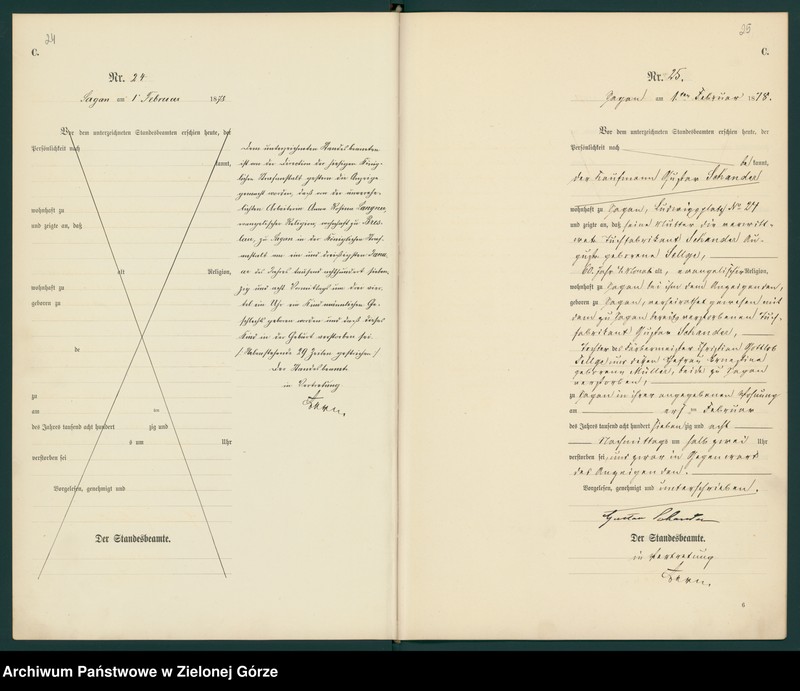 24
C.
Nr. 24
Sagan am 1 Februar 1878
Vor dem unterzeichneten Standesbeamten erschien heute, der
Persönlichkeit nach
kannt,
wohnhaft zu
und zeigte an, daß
alt Religion,
wohnhaft zu
geboren zu
de
zu
am ten
des Jahres tausend acht hundert zig und
s um Uhr
verstorben sei
Vorgelesen, genehmigt und
Der Standesbeamte.
Dem unterzeichneten Standesbeamten
ist von der Direction der hiesigen König-
lichen Strafanstalt gestern die Anzeige
gemacht worden, daß von der unverehe-
lichten Arbeiterin Anna Rosina Langner,
evangelischer Religion, wohnhaft zu Bres-
lau, zu Sagan in der Königlichen Straf-
anstalt am ein und dreißigsten Janu-
ar des Jahres tausend achthundert sieben-
zig und acht Vormittags um drei vier-
tel ein Uhr ein Kind männlichen Ge-
schlechts geboren worden und daß dieses
Kind in der Geburt verstorben sei.
/ Nebenstehende 29 Zeilen gestrichen /
Der Standesbeamte
in Vertretung
25
C.
Nr. 25.
Sagan am 1ten Februar 1878.
Vor dem unterzeichneten Standesbeamten erschien heute, der
Persönlichkeit nach
be kannt,
der Kaufmann Gustav Schander
wohnhaft zu Sagan, Ludwigsplatz No 21
und zeigte an, daß seine Mutter die verwitt-
wete Tuchfabrikant Schander Au-
guste geborene Sellge,
60. Jahr Monat alt, evangelischer Religion,
wohnhaft zu Sagan bei ihm dem Anzeigenden,
geboren zu Sagan, verheirathet gewesen mit
dem zu Sagan bereits verstorbenen Tuch-
fabrikant Gustav Schander,
Tochter des Färbermeister Christian Gottlob
Sellge und dessen Ehefrau Ernestine
geborene Müller, beide zu Sagan
verstorben,
zu Sagan in ihrer angegebenen Wohnung
am ersten Februar
des Jahres tausend acht hundert sieben zig und acht
Nachmittags um halb zwei Uhr
verstorben sei, und zwar in Gegenwart
des Anzeigenden.
Vorgelesen, genehmigt und unterschrieben.
Gustav Schander
Der Standesbeamte.
in Vertretung
6
Archiwum Państwowe w Zielonej Górze